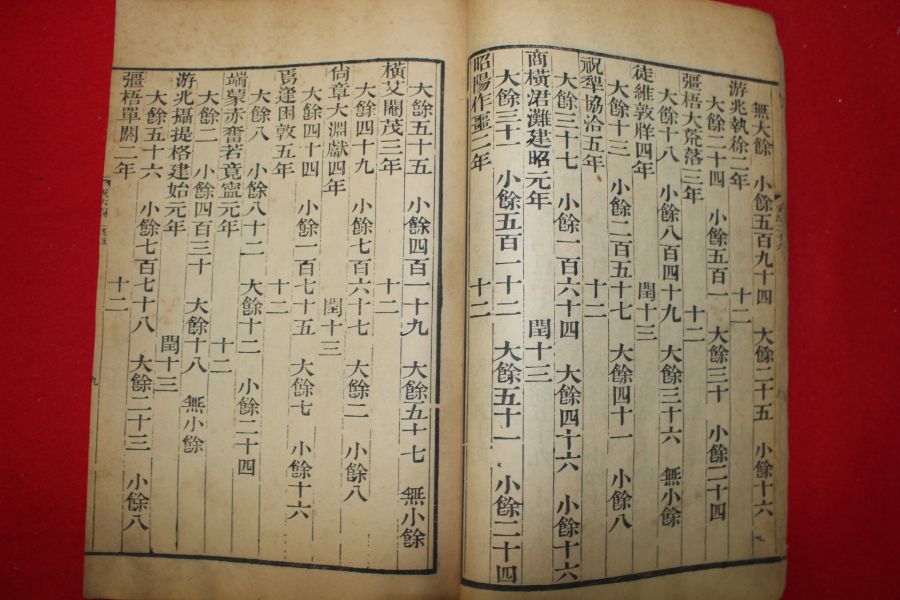 無大餘 小餘五百九十四 大餘二十五 小餘十六
游兆執徐二年 十二
大餘二十四 小餘五百一 大餘三十 小餘二十四
彊梧大荒落三年 十二
大餘十八 小餘八百四十九 大餘三十六 無小餘
徒維敦牂四年 閏十三
大餘十三 小餘二百五十七 大餘四十一 小餘八
祝犂協洽五年 十二
大餘三十七 小餘一百六十四 大餘四十六 小餘十六
商橫涒灘建昭元年 閏十三
大餘三十一 小餘五百一十二 大餘五十一 小餘二十四
昭陽作噩二年 十二
大餘五十五 小餘四百一十九 大餘五十七 無小餘
橫艾閹茂三年 十二
大餘四十九 小餘七百六十七 大餘二 小餘八
尙章大淵獻四年 閏十三
大餘四十四 小餘一百七十五 大餘七 小餘十六
焉逢困敦五年 十二
大餘八 小餘八十二 大餘十二 小餘二十四
端蒙赤奮若竟寧元年 十二
大餘二 小餘四百三十 大餘十八 無小餘
游兆攝提格建始元年 閏十三
大餘五十六 小餘七百七十八 大餘二十三 小餘八
彊梧單閼二年 十二
九